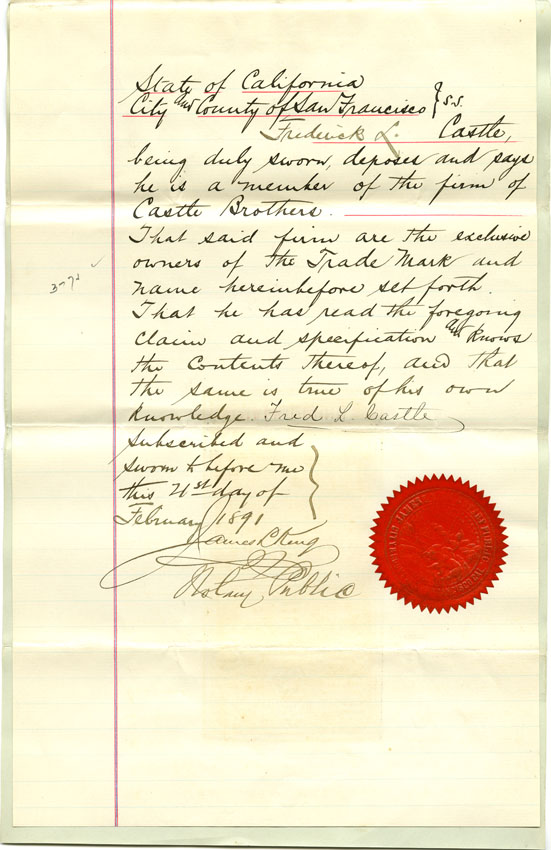 State of California
City and County of San Francisco } s.s.
Frederick L. Castle,
being duly sworn, deposes and says
he is a member of the firm of
Castle Brothers.
That said firm are the exclusive
owners of the Trade Mark and
name hereinbefore set forth.
That he has read the foregoing
claim and specification and knows
the contents thereof, and that
the same is true of his own
knowledge. Fred L. Castle
Subscribed and
sworn to before me
this 21st day of
February 1891
James L. King
Notary Public